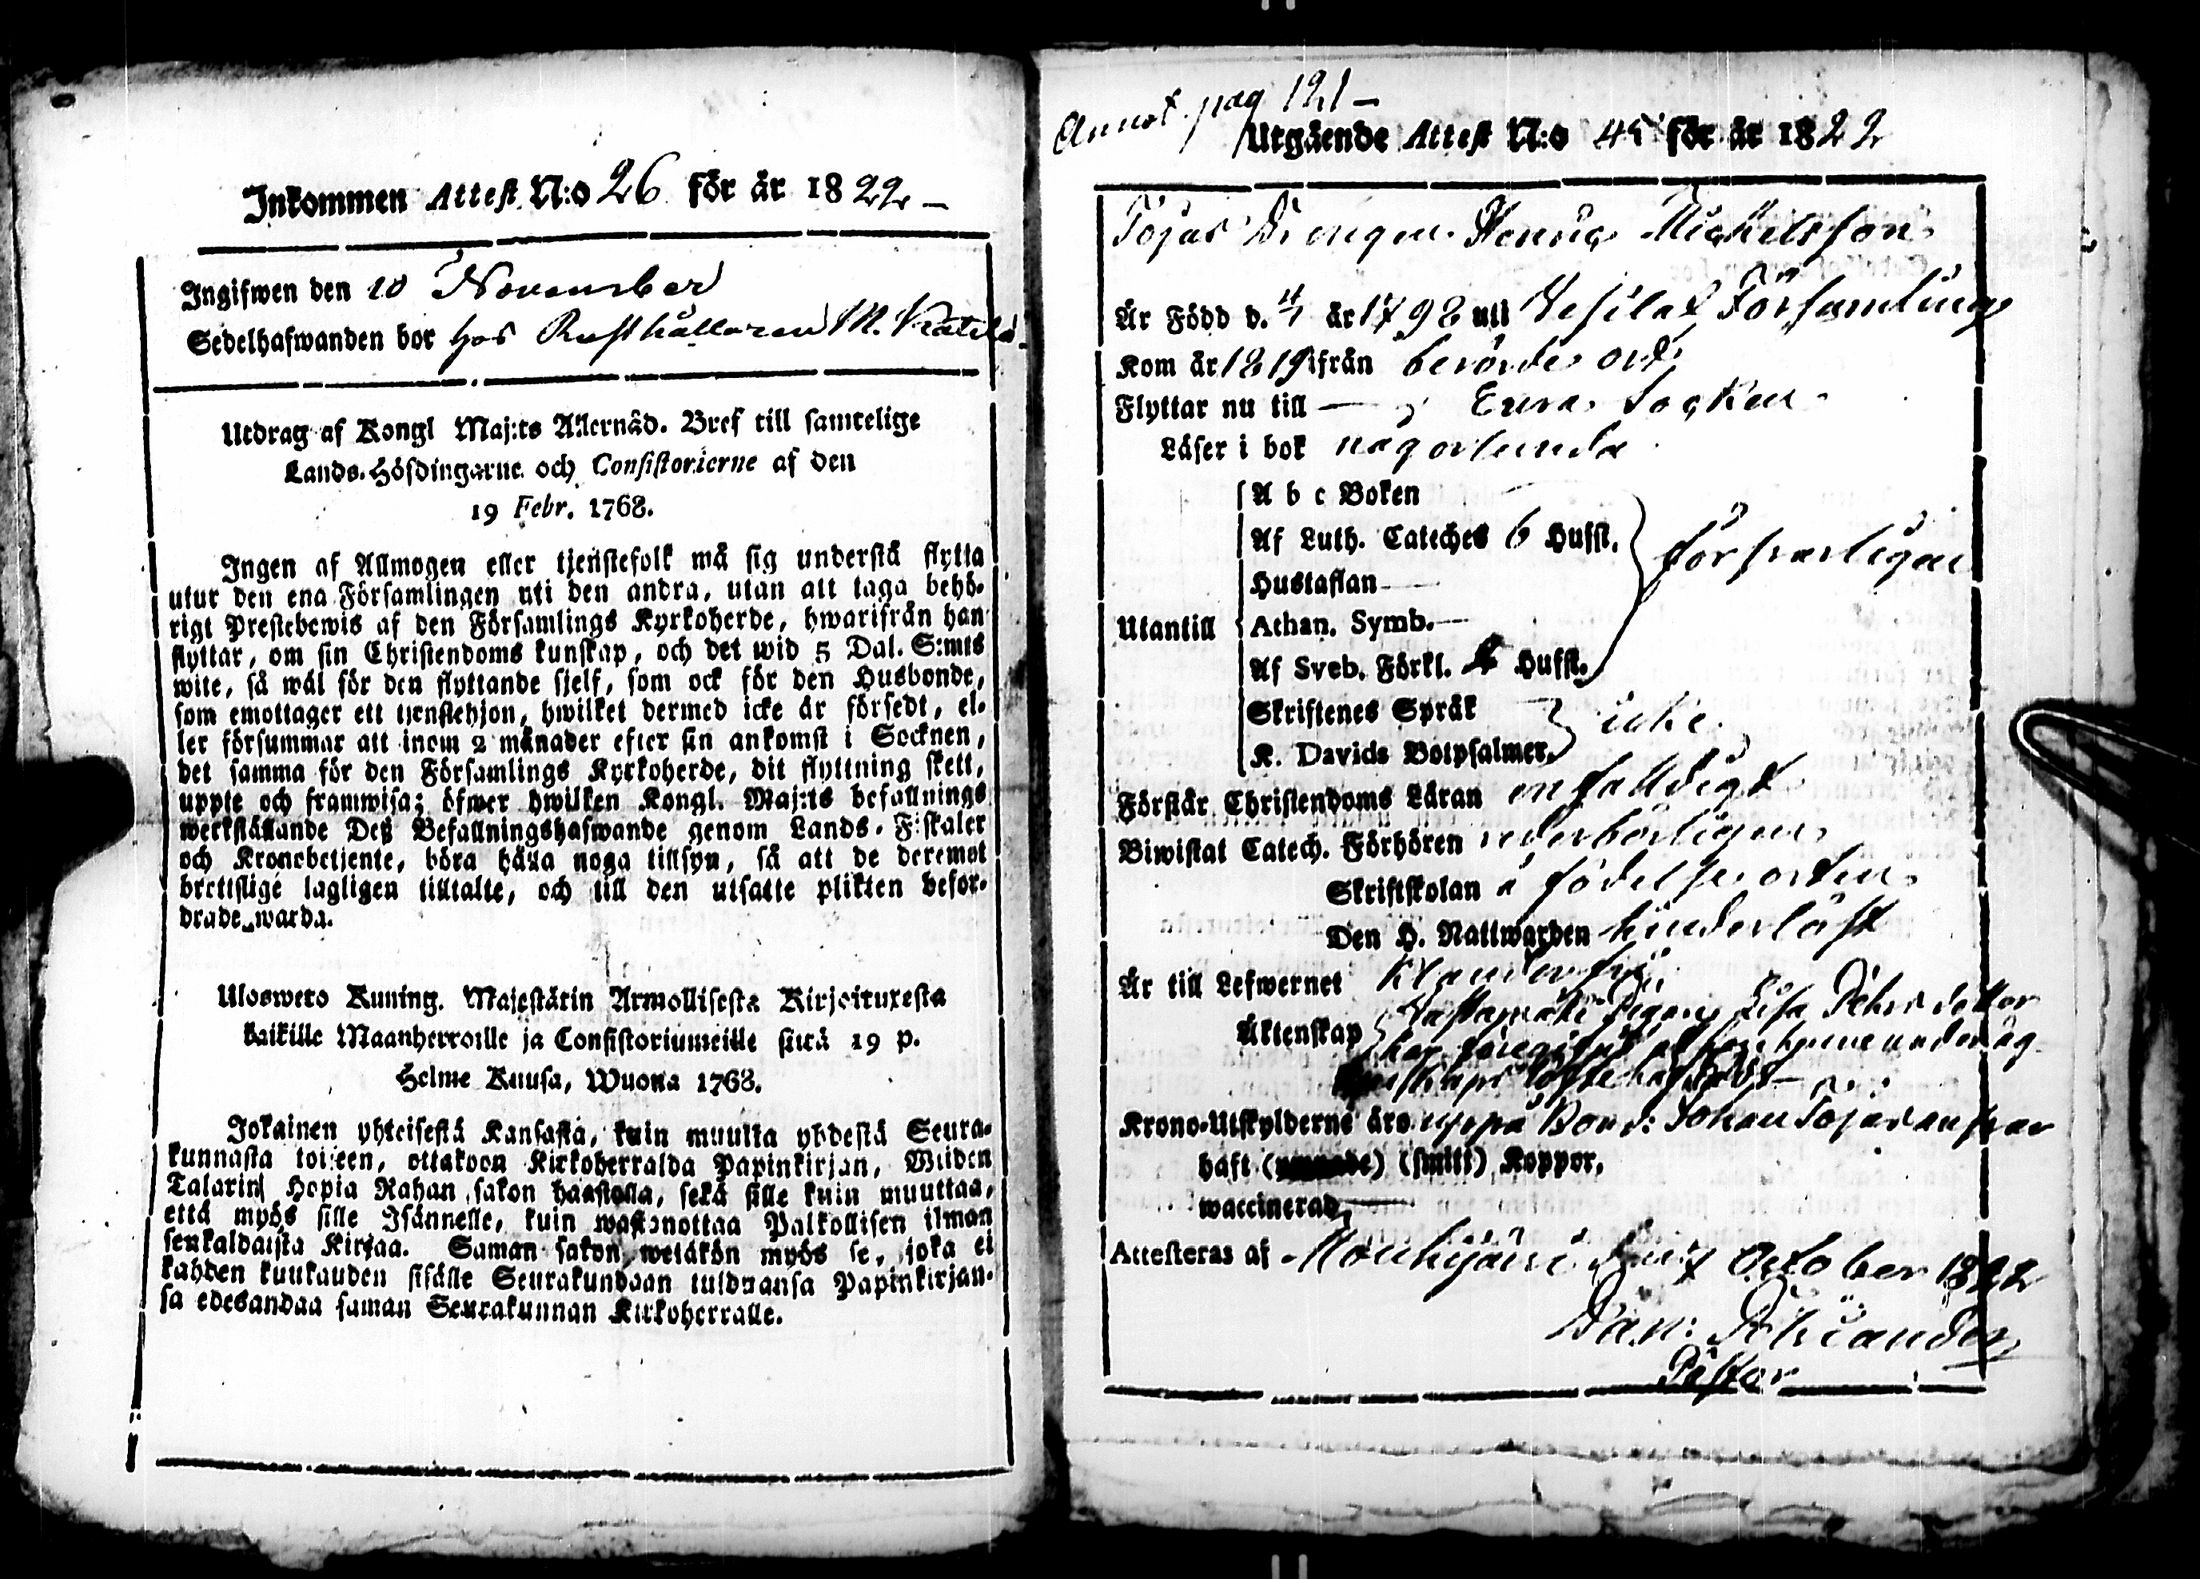 Inkommen Attest N:o 26 för år 1822
Ingifwen den 10 November
Sedelhafwanden bor hos Rusthållaren M. Katila
Utdrag af Kongl Maj:ts Allernåd. Bref till samtelige
Lands-Höfdingarne och Consistorierne af den
19 Febr. 1768.
Ingen af Allmogen eller tjenstefolk må sig understå flytta
utur den ena Församlingen uti den andra, utan att taga behö-
rigt Prestebewis af den Församlings Kyrkoherde, hwarifrån han
flyttar, om sin Christendoms kunskap, och det wid 5 Dal. S:mts
wite, så wäl för den flyttande sjelf, som ock för den Husbonde,
som emottager ett tjenstehjon, hwilket dermed icke är försedt, el-
ler försummar att inom 2 månader efter sin ankomst i Socknen,
det samma för den Församlings Kyrkoherde, dit flyttning skett,
uppte och framwisa; öfwer hwilken Kongl. Maj:ts befallnings
werkställande Deß Befallningshafwande genom Lands-Fiskaler
och Kronebetjente, böra hålla noga tillsyn, så att de deremot
brettslige lagligen tilltalte, och till den utsatte plikten befor-
drade warda.
Uloswero Kuning. Majestätin Armollisesta Kirjoituxesta
kaikille Maanherroille ja Consistoriumeille siitä 19 p.
Helme Kuusa, Wuona 1768.
Jokainen yhteisestä Kansasta, kuin muutta yhdestä Seura-
kunnasta toiseen, ottakoon Kirkoherralda Papinkirjan, Wiiden
Talarin Hopia Rahan sakon haastolla, sekä sille kuin muuttaa,
että myös sille Isännelle, kuin wastanottaa Palkollisen ilman
senkaldaista Kirjaa. Saman sakon wetäkön myös se, joka ei
kahden kuukauden sisälle Seurakundaan tulduansa Papinkirjan-
sa edesandaa saman Seurakunnan Kirkoherralle.
Annot. pag 121
Utgående Attest N:o 45 för år 1822
Tojas Drengen Henric Michelsson
Är Född d. år 1798 uti Wesilax Församling
Kom år 1819 ifrån berörde ort
Flyttar nu till Eura Socken
Läser i bok någorlunda
Utantill
A b c Boken
Af Luth. Cateches 6 Hufst.
Hustaflan
Athan. Symb.
Af Sveb. Förkl. Hufst.
försvarligen
Skriftenes Språk
K. Davids Botpsalmer.
icke
Förstår Christendoms Läran enfalldigt
Biwistat Catech. Förhören wederbörligen
Skriftskolan å födelse orten
Den H. Nattwarden hinderlöst
Är till Lefwernet klanderfri
Äktenskap Pigan Lisa Pehrsdotter
har
Krono-Utskylderne äro uppå Bond: Johan Tojas ansvar
haft (smitt) Koppor,
waccinerad,
Attesteras af Mouhijärvi den 7 October 1822
Dan: Pehrander
Pastor